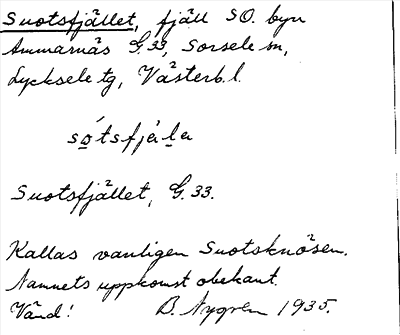 Suotsfjället, fjäll SO. byn
Ammarnäs G.33, Sorsele sn,
Lycksele tg, Västerb.l.
sótsfjäla
Suotsfjället, G.33.
Kallas vanligen Suotsknösen.
Namnets uppkomst obekant.
Vänd! B. Nygren 1935.